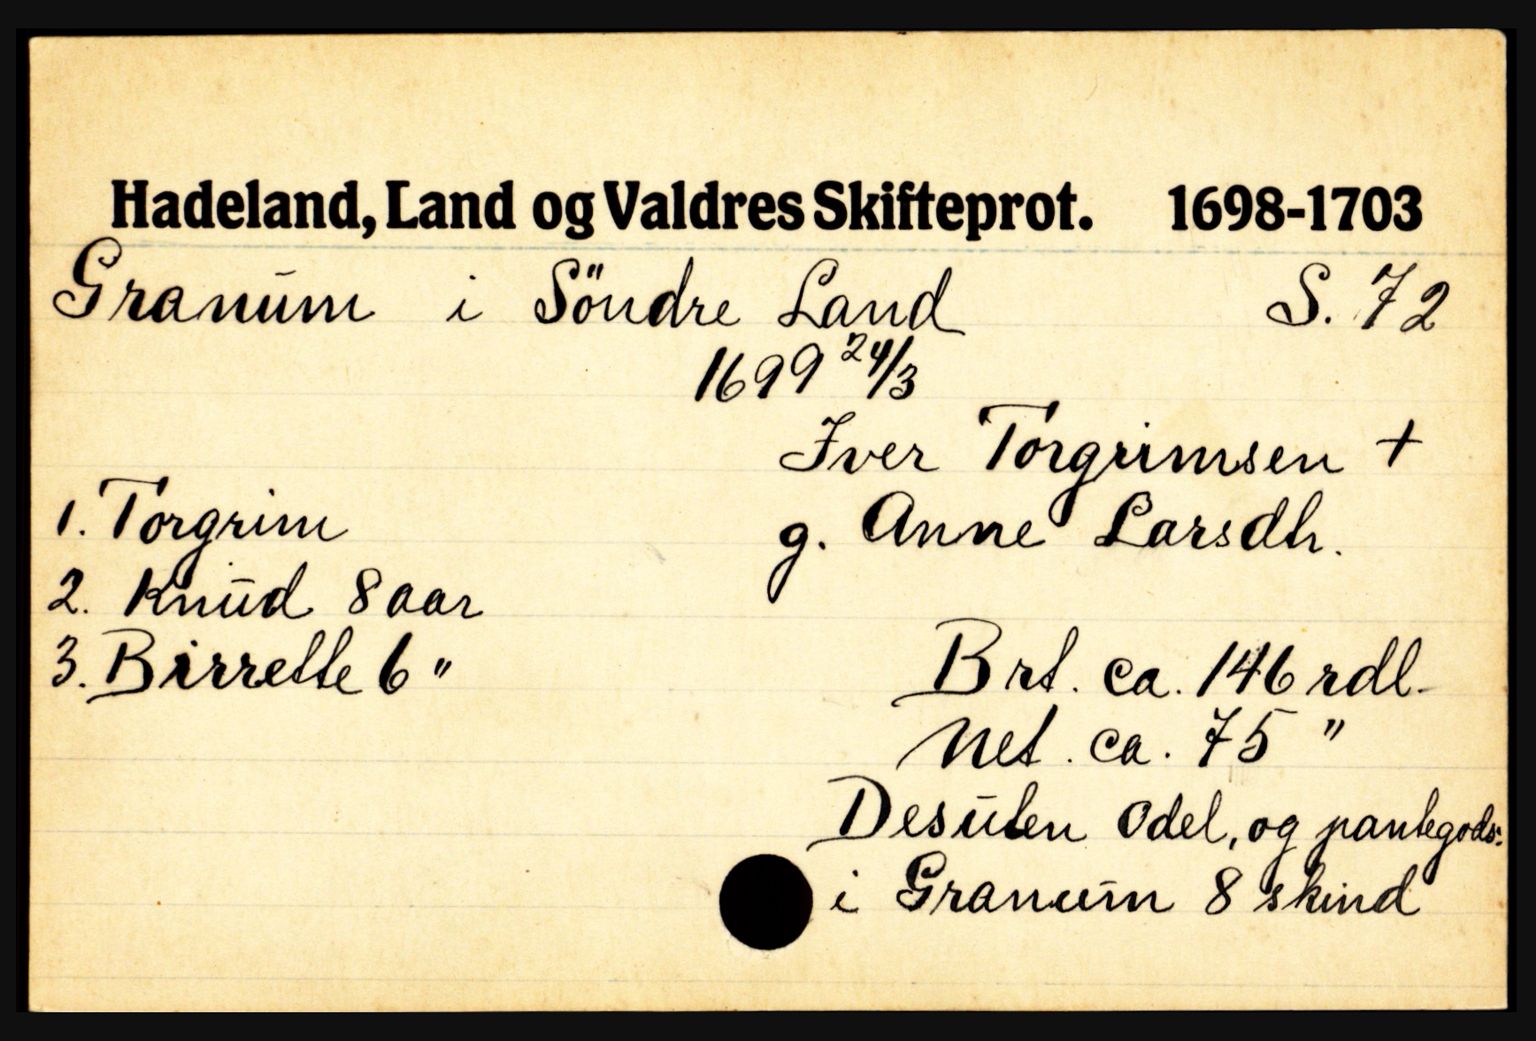 Hadeland, Land og Valdres Skifteprot. 1698-1703
Granum i Söndre Land S. 72
1699 24/3
Iver Torgrimsen +
g. Anne Larsdh.
1. Torgrim
2. Knud 8 aar
3. Birrette 6 "
Brt. ca. 146 rdl.
Net. ca. 75 "
Desuten Odel, og pantegods:
i Granum 8 skind